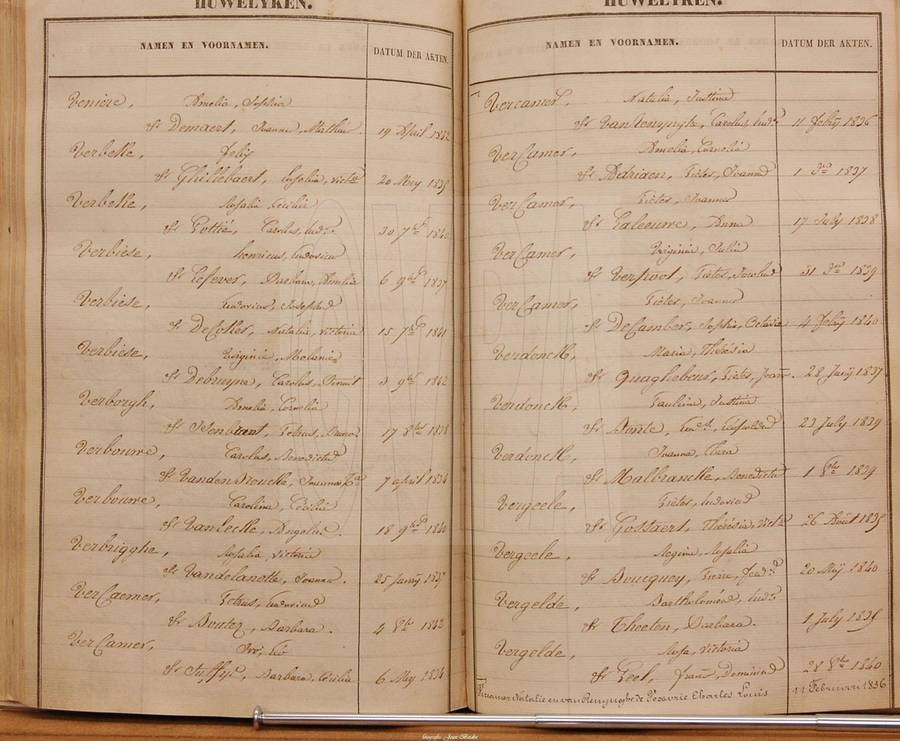 HUWELYKEN.
NAMEN EN VOORNAMEN. DATUM DER AKTEN.
Veniere, Amelia, Sophia
& Demaert, Joanne, Mathieu 19 April 1832
Verbeke, Felix
& Ghillebaert, Rosalia, Victa 20 Mey 1835
Verbeke, Rosalia Cecilia
& Pottié, Carolus, Ludcs 30 7bre 1840
Verbiese, Henricus, Ludovicus
& Lefever, Barbara, Amelia 6 9bre 1837
Verbiese, Ludovicus, Josephus
& DeCoker, Natalia, Victoria 15 7bre 1841
Verbiese, Virginie, Melanie
& Debruyne, Carolus, Benoit 3 9bre 1842
Verborgh, Amelia, Cornelia
& Petrus, Bruno 17 8bre 1838
Verbouwe, Carolus, Benedictus
& Vanden Broucke, Joanna 7 april 1836
Verbouwe, Carolina, Cecilia
& Vanlecke, Angelus. 18 9bre 1840
Verbrigghe, Rosalia Victoria
& Vandelanotte, Joannes. 25 Janry 1837
VerCaemer, Petrus, Ludovicus
& Boutez, Barbara. 4 8bre 1832
VerCamer,
& Barbara, Cecilia 6 Mey 1834
HUWELYKEN.
NAMEN EN VOORNAMEN. DATUM DER AKTEN.
Vercamer, Natalia, Justina
& Vanrenynghe, Carolus, Ludcs 11 Febry 1836
VerCamer, Amelia, Cornelia
& Adriaen, Pieter, Joannes 1 1837
VerCamer, Pieter, Joannes
& Galeeuwe, Anna 17 July 1838
VerCamer, Virginia, Julia
& Verpoot, Pieter, Jacobus 31 1839
VerCamer, Pieter, Joannes
& DeCamber, Sophie, Octavie 4 Febry 1840
Verdonck, Maria, Thérésia
& Quaghebeur, Pieter, Joans. 28 Janry 1837
Verdonck, Paulina, Justina
& Bonte, Ludcs, Leopoldus 23 July 1839
Verdonck, Joanna, Clara
& Malbrancke, Benedictus 1 8bre 1839
Vergeele, Pieter, Ludovicus
& Gossaert, Thérésia, Victa 26 Août 1835
Vergeele, Regina, Rosalia
& Boucquey, Pierre, Ferdnd 20 Meij 1840
Vergelde, Bartholomeus, Ludcs
& Theeten, Barbara. 1 July 1835
Vergelde, Rosa, Victoria
& Geel, Frans, Dominicus 28 8bre 1840
Vercamer Natalie en van Renynghe de Voxvrie Charles Louis 11 Februari 1836
fotografie Joan Bradet